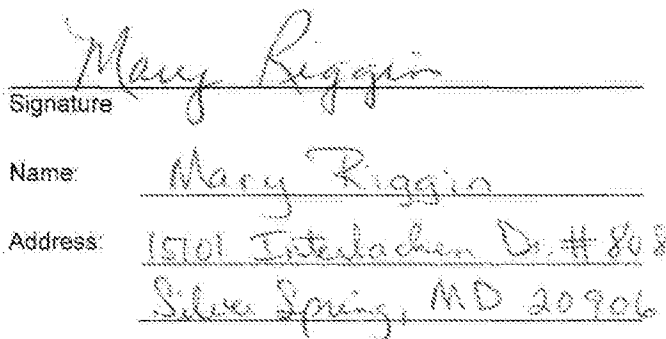 Mary Riggin
Signature
Name: Mary Riggin
Address: 15101 Interlachen Dr. # 808
Silver Spring, MD 20906